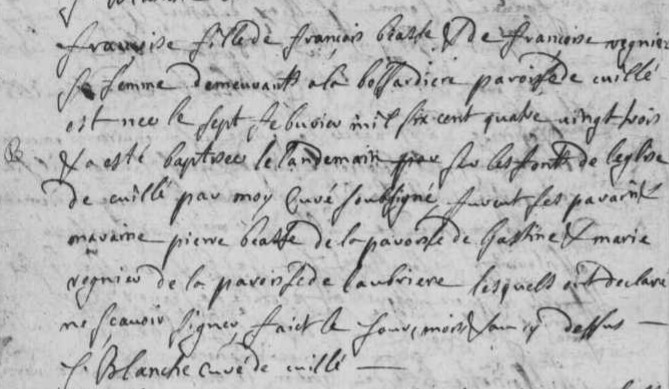 françoise fille de françois beasse & de françoise regnier
sa femme demeurants a la bossardiere paroisse de cuillé
est nee le sept febvrier mil six cent quatre vingt trois
& a esté baptisee le landemain sur les fonts de leglise
de cuillé par moy Curé soubsigné, furent ses parain &
maraine pierre beasse de la paroisse de gastine & marie
regnier de la paroisse de laubriere lesquels ont declaré
ne scavoir signer, faict le jour, mois & an cy dessus
Blanche Curé de cuillé